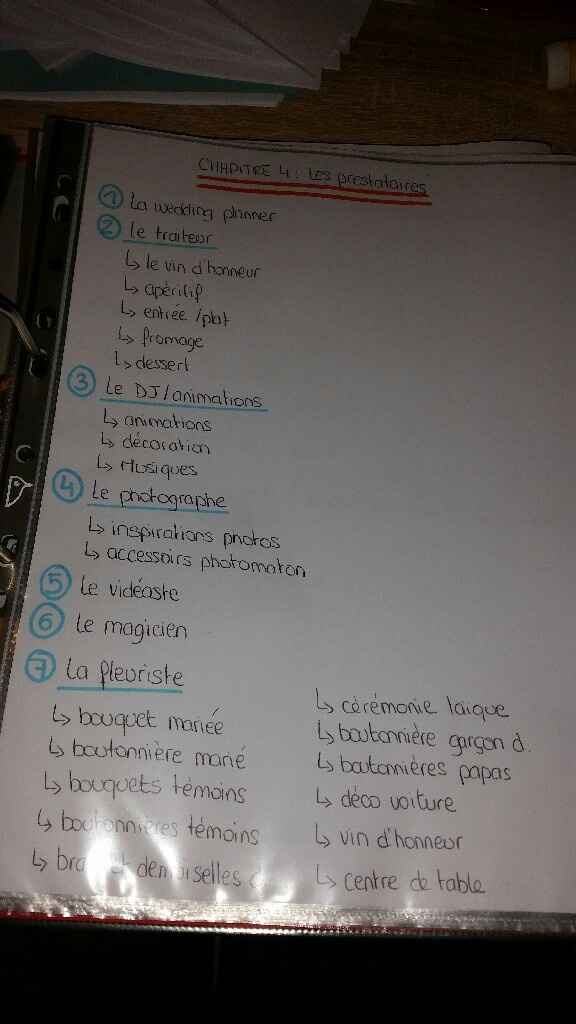 CHAPITRE 4 : Les prestataires
1 La wedding planner
2 Le traiteur
↳ le vin d'honneur
↳ apéritif
↳ entrée / plat
↳ fromage
↳ dessert
3 Le DJ / animations
↳ animations
↳ décoration
↳ Musiques
4 Le photographe
↳ inspirations photos
↳ accessoirs photomaton
5 Le vidéaste
6 Le magicien
7 La fleuriste
↳ bouquet mariée
↳ boutonnière marié
↳ bouquets témoins
↳ boutonnières témoins
↳ demoiselles
↳ cérémonie laïque
↳ boutonnière garçon d.
↳ boutonnières papas
↳ déco voiture
↳ vin d'honneur
↳ centre de table